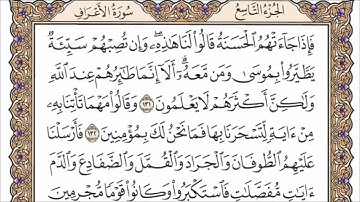 الجزء التاسع سورة الأعراف
فَإِذَا جَآءَتْهُمُ ٱلْحَسَنَةُ قَالُوا۟ لَنَا هَٰذِهِۦ ۖ وَإِن تُصِبْهُمْ سَيِّئَةٌ
يَطَّيَّرُوا۟ بِمُوسَىٰ وَمَن مَّعَهُۥٓ ۗ أَلَآ إِنَّمَا طَٰٓئِرُهُمْ عِندَ ٱللَّهِ
وَلَٰكِنَّ أَكْثَرَهُمْ لَا يَعْلَمُونَ ١٣١ وَقَالُوا۟ مَهْمَا تَأْتِنَا بِهِۦ
مِنْ ءَايَةٍ لِّتَسْحَرَنَا بِهَا فَمَا نَحْنُ لَكَ بِمُؤْمِنِينَ ١٣٢ فَأَرْسَلْنَا
عَلَيْهِمُ ٱلطُّوفَانَ وَٱلْجَرَادَ وَٱلْقُمَّلَ وَٱلضَّفَادِعَ وَٱلدَّمَ
ءَايَٰتٍ مُّفَصَّلَٰتٍ فَٱسْتَكْبَرُوا۟ وَكَانُوا۟ قَوْمًا مُّجْرِمِينَ